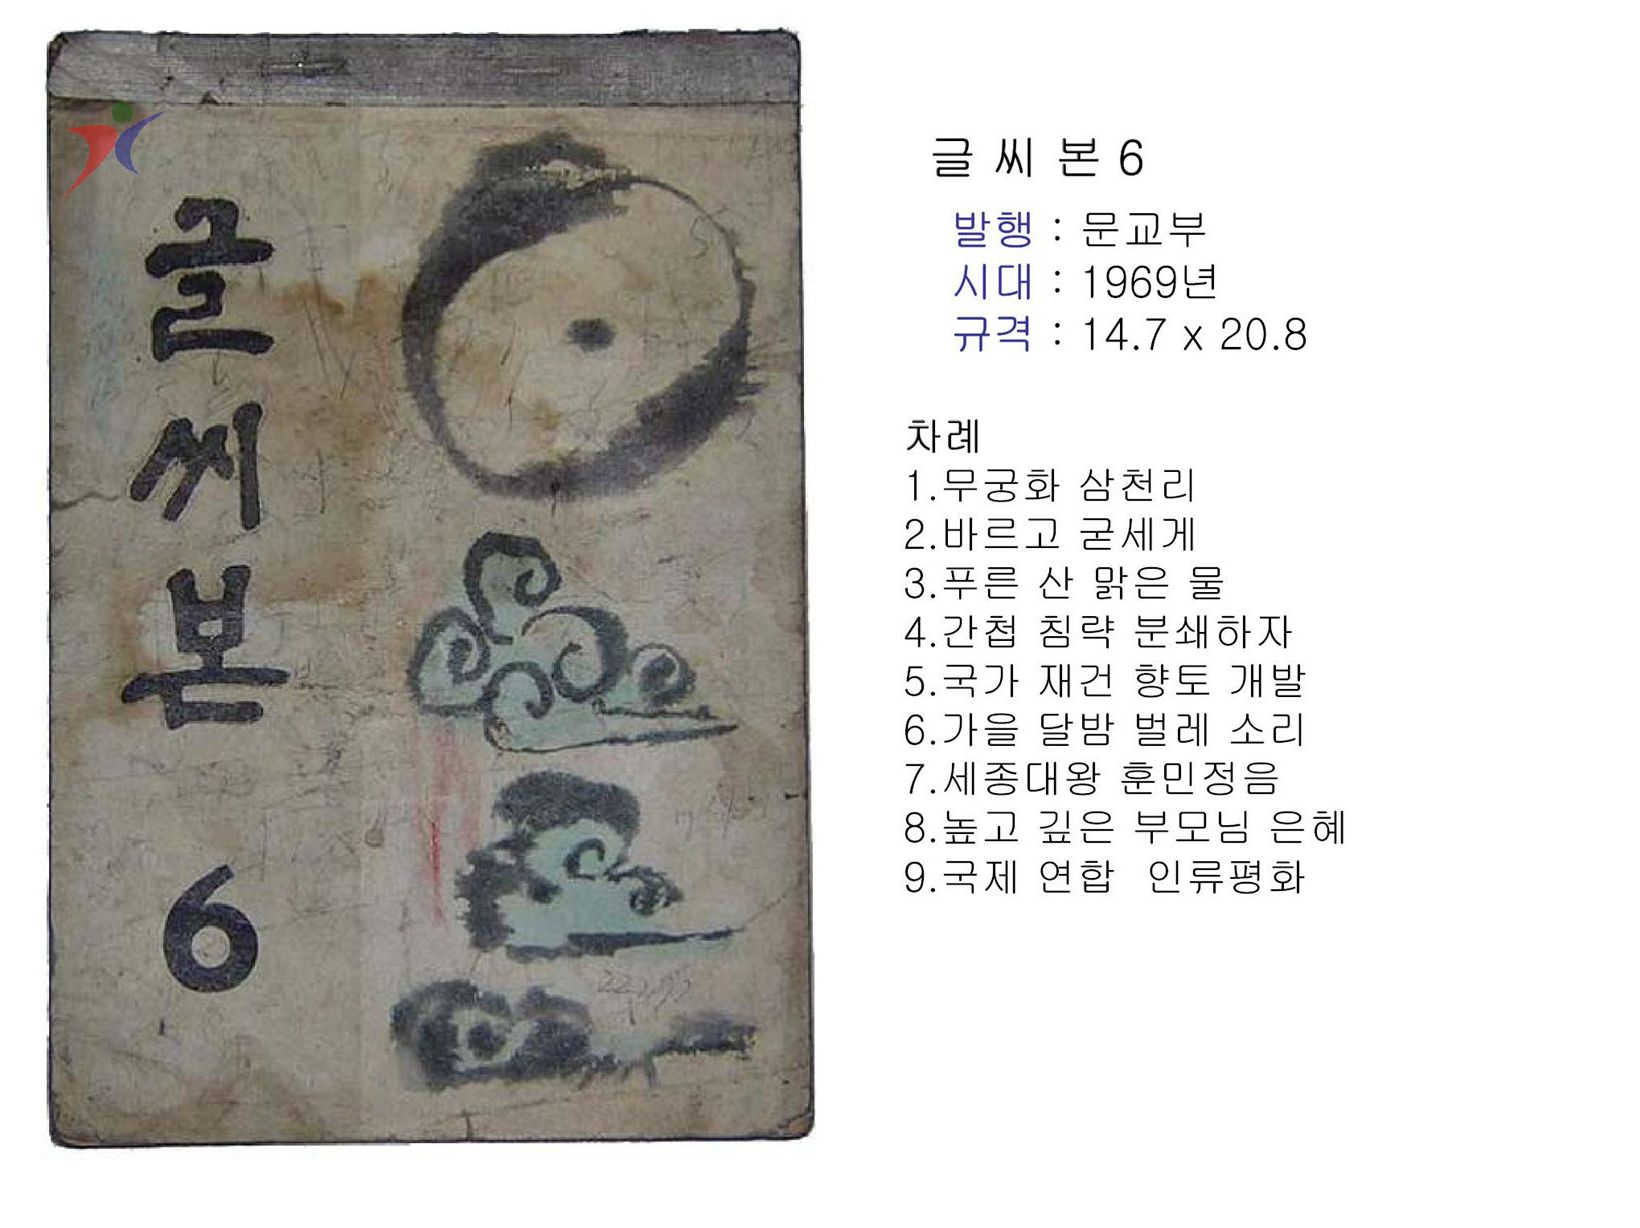 글
씨
본
6
글 씨 본 6
발행 : 문교부
시대 : 1969년
규격 : 14.7 x 20.8
차례
1.무궁화 삼천리
2.바르고 굳세게
3.푸른 산 맑은 물
4.간첩 침략 분쇄하자
5.국가 재건 향토 개발
6.가을 달밤 벌레 소리
7.세종대왕 훈민정음
8.높고 깊은 부모님 은혜
9.국제 연합 인류평화